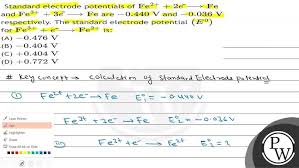 Standard electrode potentials of Fe²⁺ + 2e⁻ ⟶ Fe
and Fe³⁺ + 3e⁻ ⟶ Fe are −0.440 V and −0.036 V
respectively. The standard electrode potential (E⁰)
for Fe³⁺ + e⁻ ⟶ Fe²⁺ is:
(A) −0.476 V
(B) −0.404 V
(C) +0.404 V
(D) +0.772 V
# Key concept → calculation of standard Electrode potential
① Fe²⁺ + 2e⁻ → Fe E₁⁰ = −0.440 V
Fe³⁺ + 3e⁻ → Fe E₂⁰ = −0.036 V
Fe³⁺ + e⁻ → Fe²⁺ E₃⁰ = ?
PW